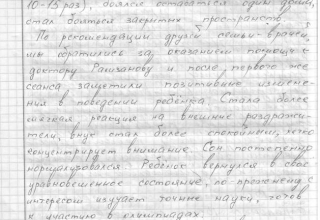 10-15 раз), боялся оставаться один дома,
стал бояться закрытых пространств.
По рекомендации друзей семьи-врачей,
мы обратились за оказанием помощи к
доктору Рамзанову и после первого же
сеанса заметили позитивные измене-
ния в поведении ребёнка. Стала более
реакция на внешние раздражи-
тели, внук стал более спокойным, легко
концентрирует внимание. Сон постепенно
нормализовался. Ребёнок вернулся в своё
уравновешенное состояние, по-прежнему с
интересом изучает точные науки, готов
к участию в олимпиадах.